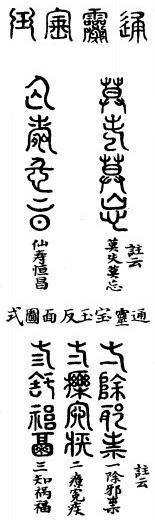 通靈寶玉
莫失莫忘
註云
莫失莫忘
仙壽恒昌
仙寿恒昌
通靈宝玉反面圖式
一除邪祟
註云
一除邪祟
二療冤疾
二療冤疾
三知禍福
三知祸福